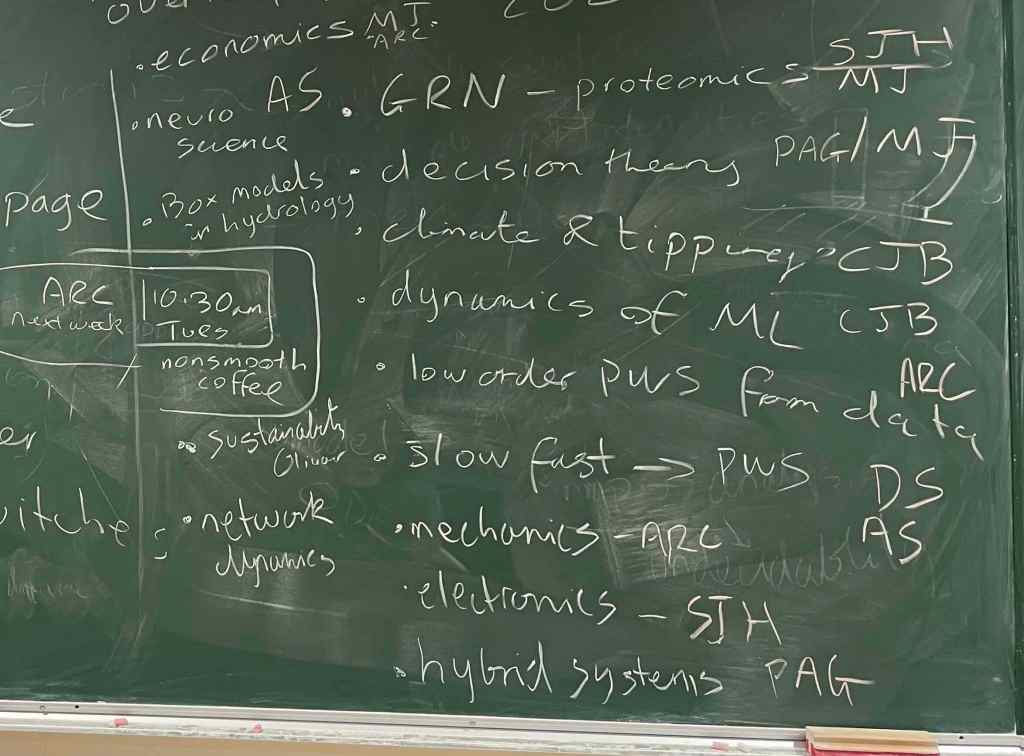 economics MJ.
ARC
• neuro AS
science
• Box models
in hydrology
page
ARC
next week
10:30am
TUES
nonsmooth
coffee
• sustainability
• network
dynamics
• GRN - proteomics SJH
MJ
• decision theory PAG/MJ
• climate & tipping CJB
• dynamics of ML CJB
• low order PWS from data ARC
• slow fast → PWS DS
• mechanics - ARC AS
• electronics - SJH
• hybrid systems PAG